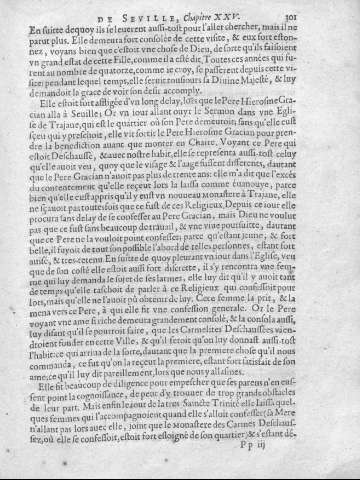 DE SEVILLE, Chapitre XXV. 301
En suitte dequoy ils se leuerent aussi-tost pour l'aller chercher, mais il ne
parut plus. Elle demeura fort consolée de cette visite, & eux fort eston-
nez, voyant bien que c'estoit vne chose de Dieu, de sorte qu'ils faisoient
vn grand estat de cette Fille, comme il a esté dit. Toutes ces années qui fu-
rent au nombre de quatorze, comme ie croy, se passerent depuis cette vi-
sion; pendant lequel temps, elle seruit tousiours sa Diuine Majesté, & luy
demandoit la grace de voir son desir accomply.
Elle estoit fort affligée d'vn long delay, lors que le Pere Hierosme Gra-
cian alla à Seuille; Or vn iour allant ouyr le Sermon dans vne Egli-
se de Trajane, qui est le quartier où son Pere demeuroit, sans qu'elle eust
sçeu qui y preschoit, elle vit sortir le Pere Hierosme Gracian pour pren-
dre la benediction auant que monter en Chaire. Voyant ce Pere qui
estoit Deschaussé, & auec nostre habit, elle se representa aussi-tost celuy
qu'elle auoit veu, quoy que le visage & l'aage fussent differents, dautant
que le Pere Gracian n'auoit pas plus de trente ans: elle m'a dit que l'excés
du contentement qu'elle reçeut lors la laissa comme éuanouye, parce
bien qu'elle eust appris qu'il y eust vn nouueau Monastere à Trajane, elle
ne sçauoit pas toutesfois que ce fust de ces Religieux. Depuis ce iour elle
procura sans delay de se confesser au Pere Gracian, mais Dieu ne voulut
pas que ce fust sans beaucoup de trauail, & vne vraye poursuitte, dautant
que ce Pere ne la vouloit point confesser, parce qu'estant jeune, & fort
belle, il fuyoit de tout son possible l'abord de telles personnes, estant fort
auisé, & tres-retenu. En suitte de quoy pleurant vn iour dans l'Eglise, veu
que de son costé elle estoit aussi fort discrette, il s'y rencontra vne fem-
me qui luy demanda le sujet de ses larmes, elle luy dit qu'il y auoit tant
de temps qu'elle taschoit de parler à ce Religieux qui confessoit pour
lors, mais qu'elle ne l'auoit pû obtenir de luy. Cette femme la prit, & la
mena vers ce Pere, à qui elle fit vne confession generale. Or le Pere
voyant vne ame si riche demeura grandement consolé, & la consola aussi,
luy disant qu'il se pourroit faire, que les Carmelites Deschaussées vien-
droient fonder en cette Ville, & qu'il feroit qu'on luy donnast aussi-tost
l'habit: ce qui arriua de la sorte, dautant que la premiere chose qu'il nous
commanda, ce fut qu'on la reçeut la premiere, estant fort satisfait de son
ame, ce qu'il luy dit pareillement, lors que nous y allasmes.
Elle fit beaucoup de diligence pour empescher que ses parens n'en eus-
sent point la cognoissance, de peur d'y trouuer de trop grands obstacles
de leur part. Mais enfin le iour de la tres Saincte Trinité elle laissa quel-
ques femmes qui l'accompagnoient quand elle s'alloit confesser, (sa Mere
n'allant pas lors auec elle, joint que le Monastere des Carmes Deschaus-
sez, où elle se confessoit, estoit fort esloigné de son quartier) & s'estant dé-
Pp iij